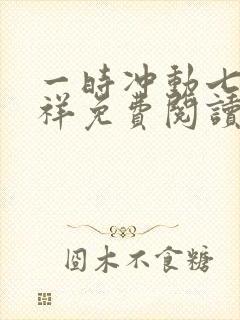 一時冲動七
祥免費閱讀
囧木不食糖